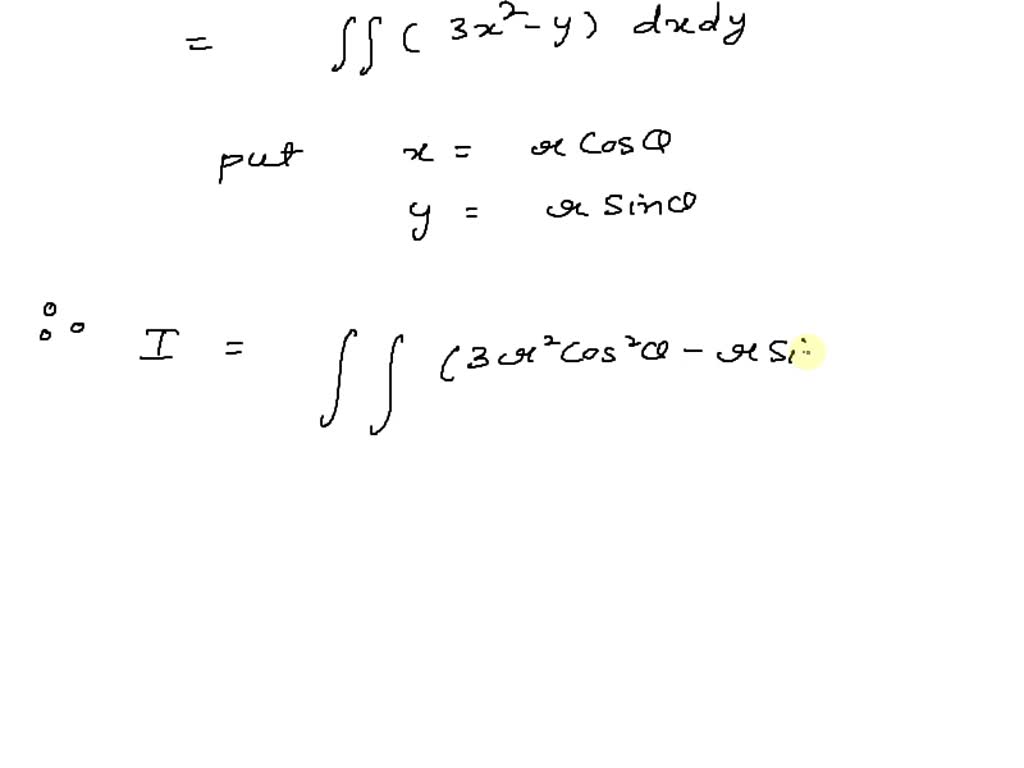 = ∬ ( 3x² - y ) dxdy
put x = r cosθ
y = r sinθ
∴ I = ∬ (3r²cos²θ - r Si